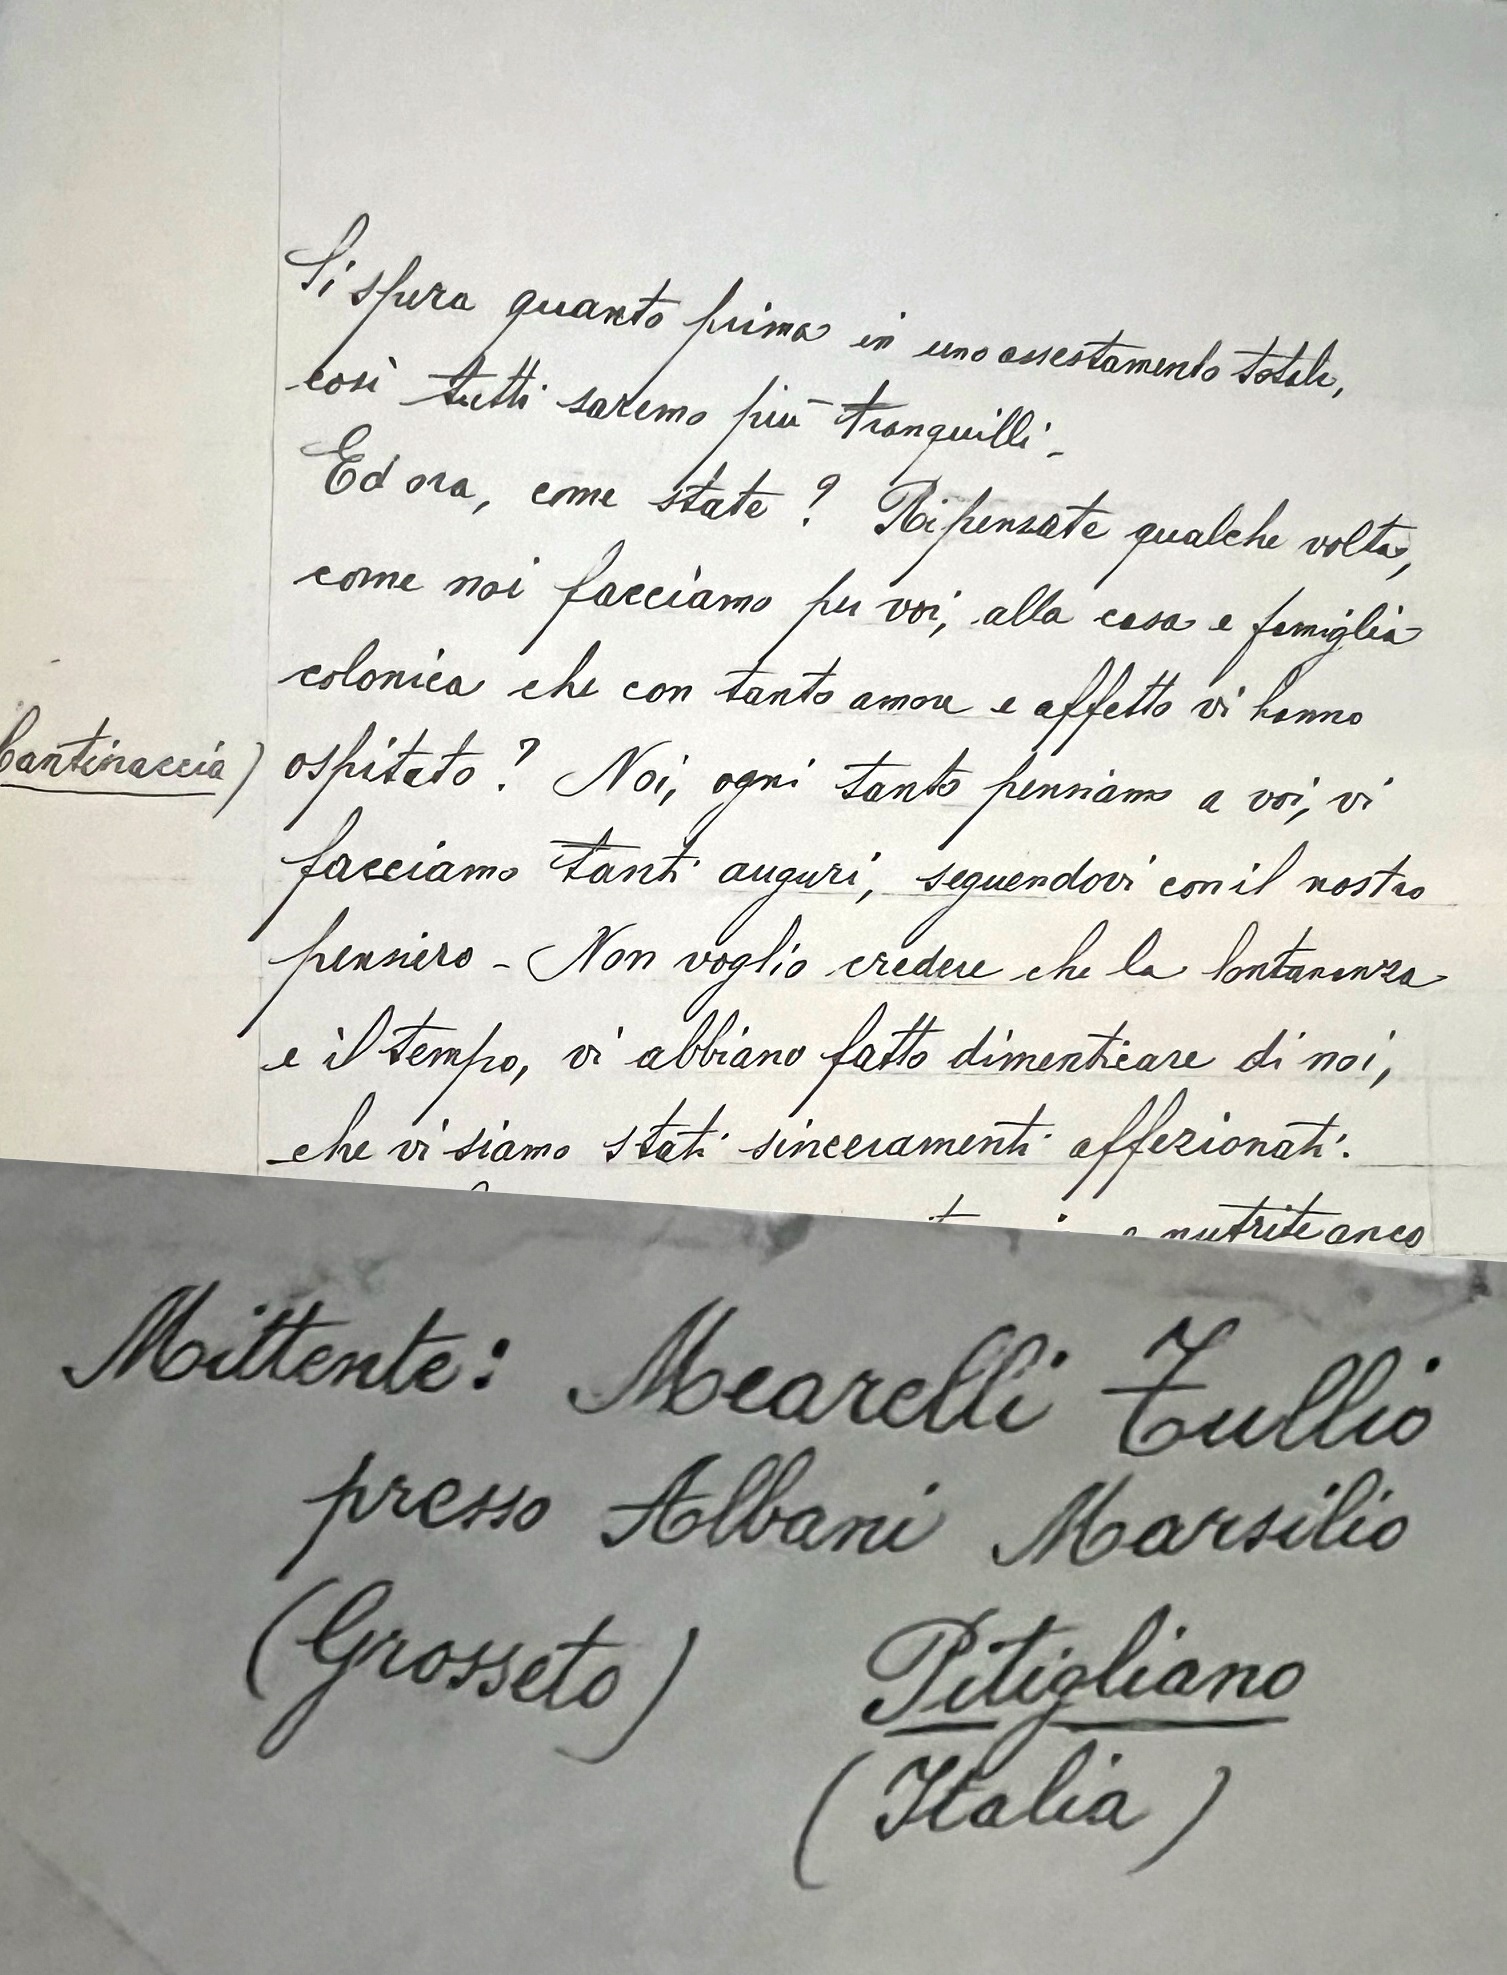 Si spera quanto prima in uno assestamento totale,
così tutti saremo più tranquilli -
Ed ora, come state? Ripensate qualche volta,
come noi facciamo per voi, alla casa e famiglia
colonica che con tanto amore e affetto vi hanno
Cantinaccia) ospitato? Noi, ogni tanto pensiamo a voi, vi
facciamo tanti auguri, seguendovi con il nostro
pensiero - Non voglio credere che la lontananza
e il tempo, vi abbiano fatto dimenticare di noi,
che vi siamo stati sinceramenti affezionati.
e nutrite anco
Mittente: Mearelli Tullio
presso Albani Marsilio
(Grosseto) Pitigliano
(Italia)